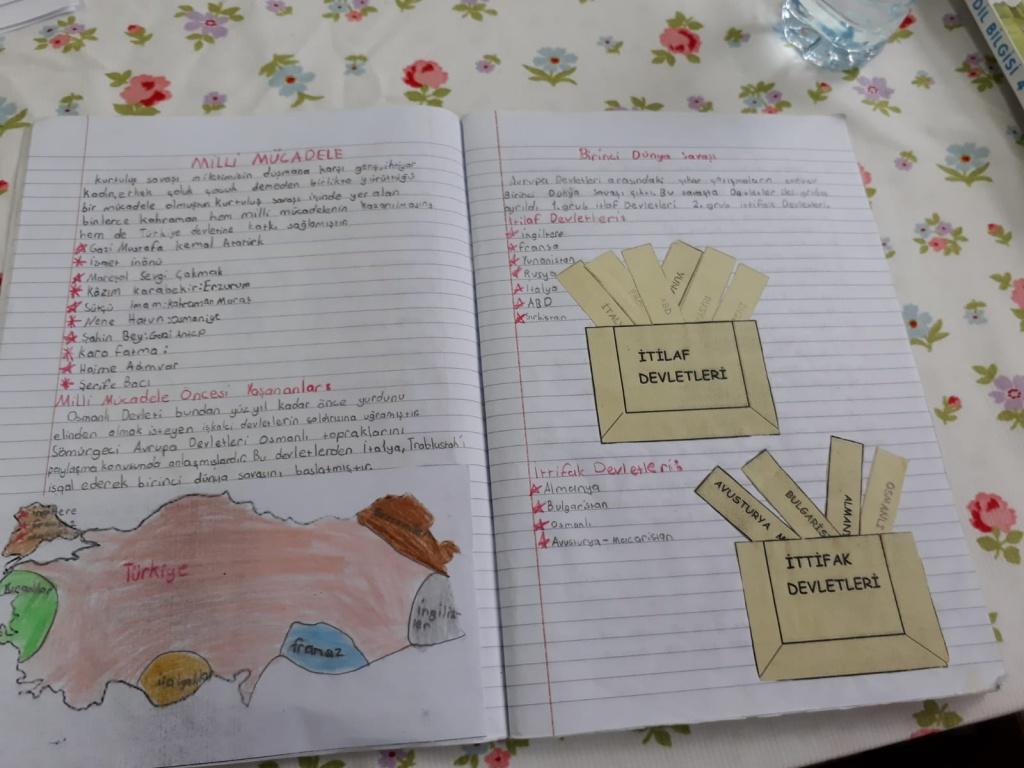 MİLLİ MÜCADELE
Kurtuluş savaşı milletimizin düşmana karşı genç, ihtiyar
kadın, erkek çoluk çocuk demeden birlikte yürüttüğü
bir mücadele olmuştur. kurtuluş savaşı içinde yer alan
binlerce kahraman hem milli mücadelenin kazanılmasına
hem de Türkiye devletine katkı sağlamıştır
Gazi Mustafa kemal Atatürk
İsmet inönü
Mareşal Çakmak
Kazım karabekir: Erzurum
Sütçü imam: kahraman Maraş
Nene Hatun: osmaniye
Şahin Bey: Gazi antep
Kara fatma:
Halme
Şerife Bacı
Milli Mücadele Öncesi Yaşananlar:
Osmanlı Devleti bundan yüz yıl kadar önce yurdunu
elinden almak isteyen devletlerin saldırısına uğramıştır
Sömürgeci Avrupa Devletleri Osmanlı topraklarını
paylaşma konusunda anlaşmışlardır. Bu devletlerden italya, Trablustah'ı
işgal ederek birinci dünya savaşını başlatmıştır.
Türkiye
ingiliz
ler
fransız
Birinci Dünya savaşı
Avrupa Devletleri arasındaki çıkar çatışmaların
Birinci Dünya Savaşı çıktı. Bu savaşta Devletler iki gruba
ayrıldı. 1. grub itilaf Devletleri 2. grub ittifak Devletleri.
İtilaf Devletleri:
ingiltere
Fransa
Yunanistan
Rusya
italya
ABD
Sırbistan
İTAL
ABD
YUN
İTİLAF
DEVLETLERİ
İttifak Devletleri:
Almanya
Bulgaristan
Osmanlı
Avusturya - Macaristan
AVUSTURYA M
BULGARİS
ALMAN
OSMANLI
İTTİFAK
DEVLETLERİ
DİL BİLGİSİ 4